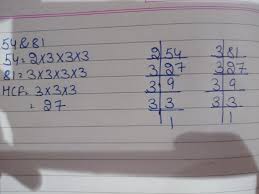 54 & 81
54 = 2×3×3×3
81 = 3×3×3×3
HCF = 3×3×3
= 27
2 | 54
3 | 27
3 | 9
3 | 3
1
3 | 81
3 | 27
3 | 9
3 | 3
1